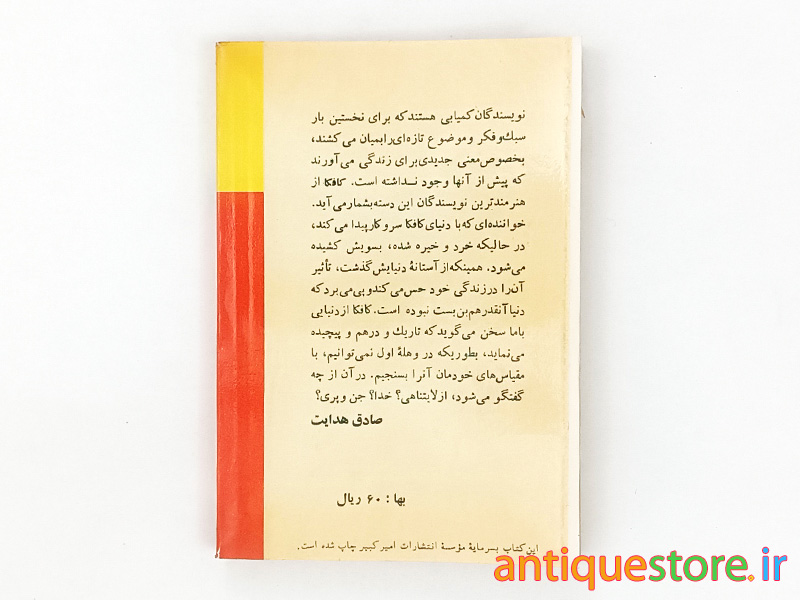 نویسندگان کمیابی هستند که برای نخستین بار
سبك و فکر و موضوع تازه‌ای را بمیان می کشند،
بخصوص معنی جدیدی برای زندگی می آورند
که پیش از آنها وجود نداشته است. کافکا از
هنرمندترین نویسندگان این دسته بشمار می آید.
خواننده‌ای که با دنیای کافکا سروکار پیدا می کند،
در حالیکه خرد و خیره شده، بسویش کشیده
می‌شود. همینکه از آستانهٔ دنیایش گذشت، تأثیر
آن را در زندگی خود حس می کند و پی می برد که
دنیا آنقدر هم بن بست نبوده است. کافکا از دنیایی
باما سخن می گوید که تاریك و درهم و پیچیده
می‌نماید، بطوریکه در وهلهٔ اول نمی توانیم، با
مقیاس‌های خودمان آنرا بسنجیم. در آن از چه
گفتگو می‌شود، از لایتناهی؟ خدا؟ جن و پری؟
صادق هدایت
بها : ۶۰ ریال
این کتاب بسرمایهٔ مؤسسهٔ انتشارات امیرکبیر چاپ شده است.
antiquestore.ir